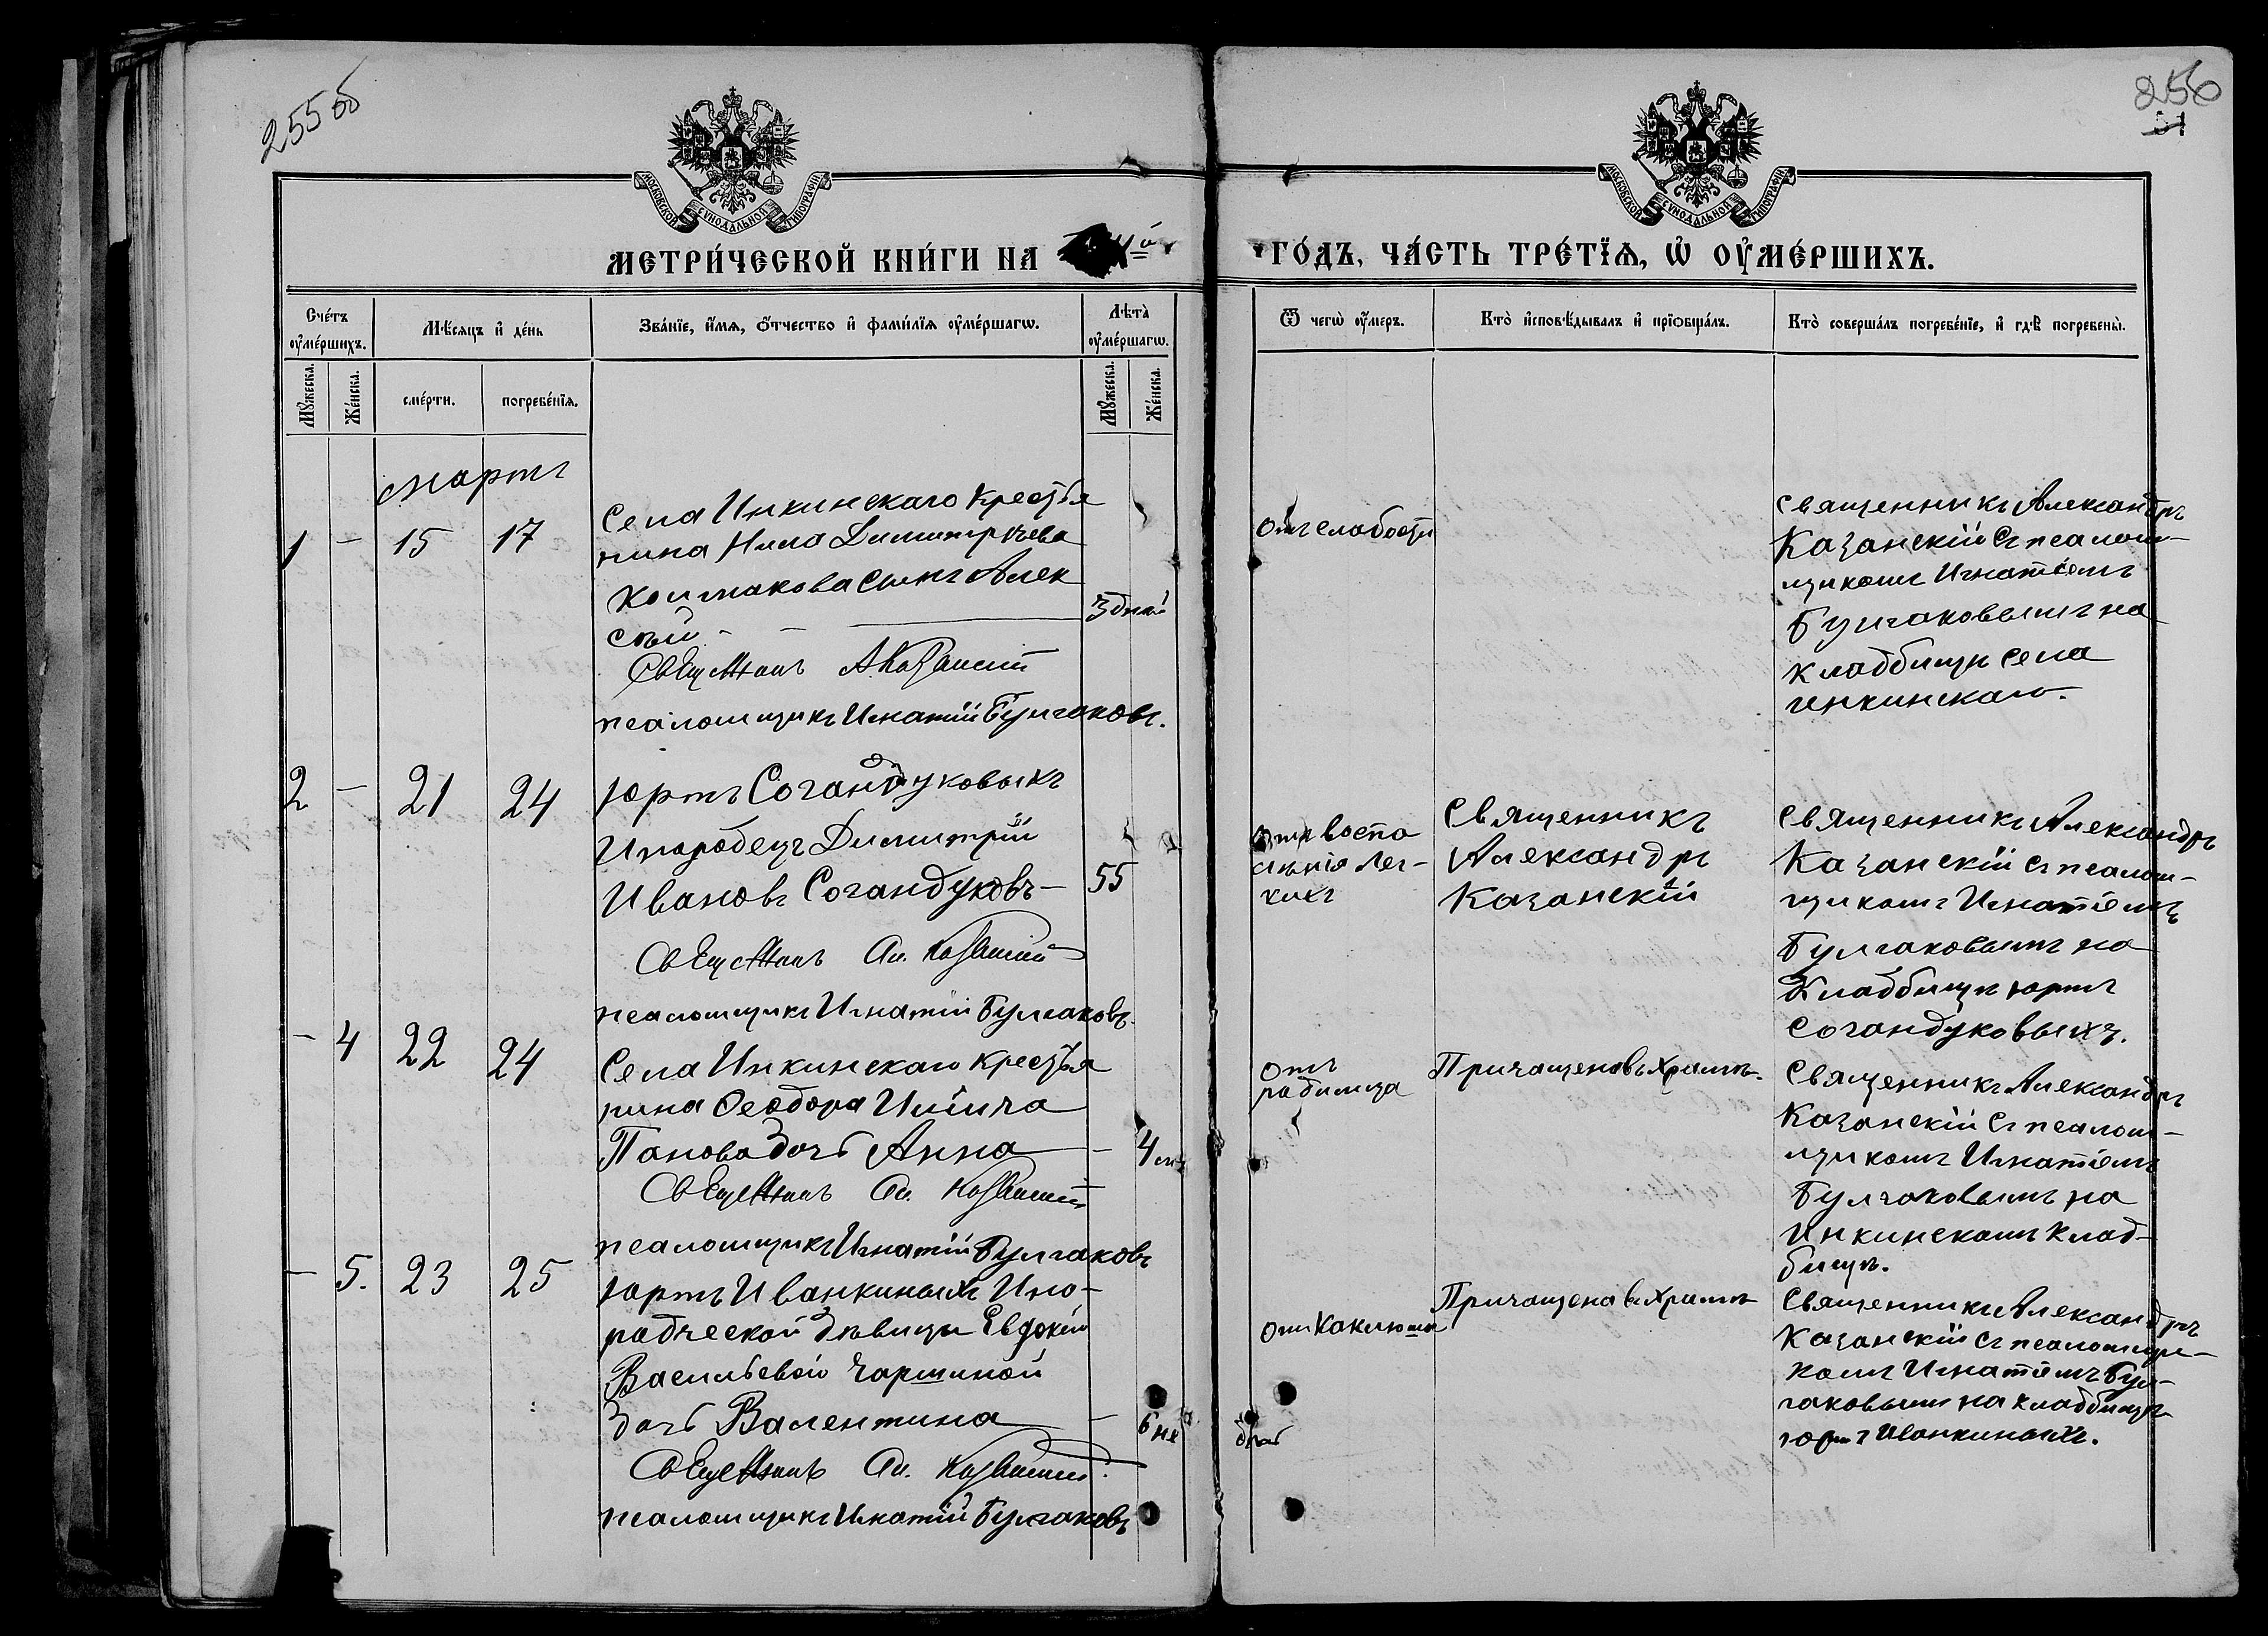 255 об
256
51
МОСКОВСКОЙ СУНОДАЛЬНОЙ ТИПОГРАФІИ
МОСКОВСКОЙ СУНОДАЛЬНОЙ ТИПОГРАФІИ
МЕТРИ́ЧЕСКОЙ КНИ́ГИ НА
ГО́ДЪ, ЧА́СТЬ ТРЕ́ТЇѦ, Ѡ҆ ОУ҆МЕ́РШИХЪ.
Сче́тъ оу҆ме́ршихъ.
Мѣ́сяцъ и҆ де́нь
Зва́нїе, и҆́мѧ, ѻ҆́тчество и҆ фами́лїѧ оу҆ме́ршагѡ.
Лѣ́та̀ оу҆ме́ршагѡ.
Ѿ чегѡ̀ оу҆́меръ.
Кто̀ и҆сповѣ́дывалъ и҆ прїѡбща́лъ.
Кто̀ соверша́лъ погребе́нїе, и҆ гдѣ̀ погребены̀.
Мꙋ́жеска.
Же́нска.
сме́рти.
погребе́нїѧ.
Мꙋ́жеска.
Же́нска.
Мартъ
1 - 15 17
Села Инкинскаго крестья
нина Нила Димитріева
Колмакова сынъ Алек
сѣй - - 3 дней
Священникъ А. Казанскій
псаломщикъ Игнатій Булгаковъ.
отъ слабости
Священникъ Александръ
Казанскій съ псалом-
щикомъ Игнатіемъ
Булгаковымъ на
кладбищѣ села
Инкинскаго.
2 - 21 24
Юртъ Согандуковыхъ
Инородецъ Димитрій
Ивановъ Согандуковъ - 55
Священникъ Ал. Казанскій
псаломщикъ Игнатій Булгаковъ.
отъ воспа
ленія лег-
кихъ
Священникъ
Александръ
Казанскій
Священникъ Александръ
Казанскій съ псалом-
щикомъ Игнатіемъ
Булгаковымъ на
Кладбищѣ юртъ
Согандуковыхъ.
- 4 22 24
Села Инкинскаго крестья
нина Ѳеодора Ильича
Панова дочь Анна - 4 м
Священникъ Ал. Казанскій
псаломщикъ Игнатій Булгаковъ
отъ
родимца
Причащена въ храмѣ.
Священникъ Александръ
Казанскій съ псалом-
щикомъ Игнатіемъ
Булгаковымъ на
Инкинскомъ клад-
бищѣ.
- 5. 23 25
Юртъ Иванкиныхъ Ино-
родческой дѣвицы Евдокіи
Васильевой Чаршиной
дочь Валентина - 6 не
Священникъ Ал. Казанскій.
псаломщикъ Игнатій Булгаковъ
отъ коклюша
Причащена въ храмѣ
Священникъ Александръ
Казанскій съ псаломщи-
комъ Игнатіемъ Бул-
гаковымъ на кладбищѣ
юртъ Иванкиныхъ.